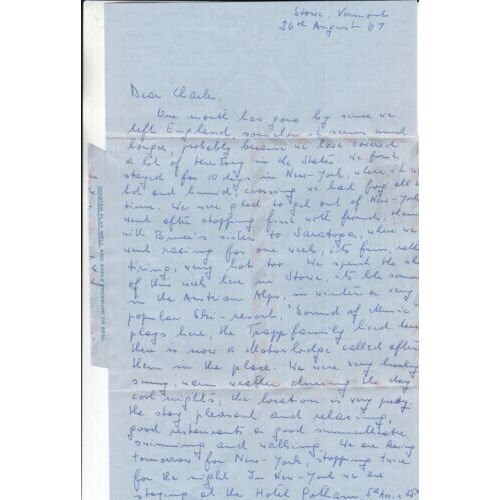 Stowe, Vermont
26th August 67
Dear Charles,
One month has gone by since we
left England, somehow it seems much
longer, probably because we have covered
a lot of territory in the States. We first
stayed for 10 days in New-York, where it w
hot and humid, crossing we had fog all
time. We were glad to get out of New-York
went after stopping first with friends, then
with Bruce's sister to Saratoga, where we
went racing for one week, its fun,
tiring, very hot too. We spent the wh
of this week here in Stowe, its like
in the Austrian Alps, in winter a very
popular Ski-resort, Sound of Music
plays here, the Trapp family lived here
there is now a Motorlodge called after
them in the place. We were very lucky
sunny, warm weather during the day
cool nights, the location is very pretty
the stay pleasant and relaxing,
good restaurants a good
swimming and walking. We are leaving
tomorrow for New-York, stopping twice
for the night. In New-York we are
staying at the Hotel 5th Ave. & 55th
MOISTEN FLAP WELL AND APPLY PRESSURE TO SEAL